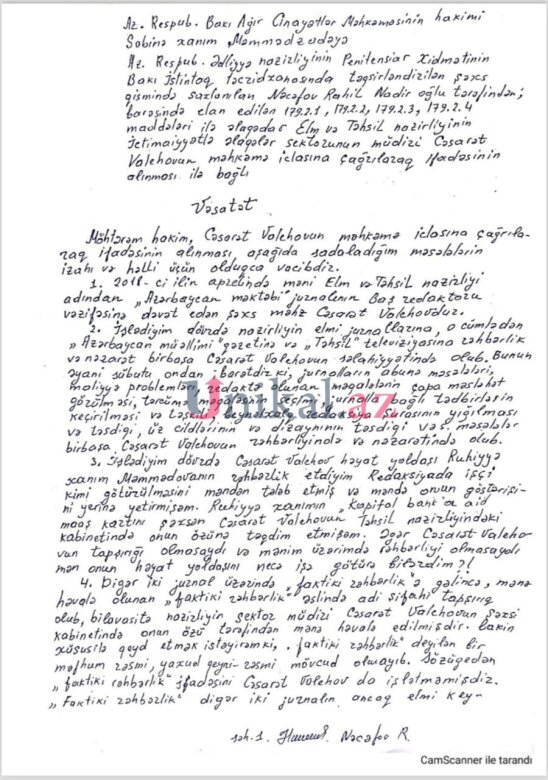 Az. Respub. Bakı Ağır Cinayətlər Məhkəməsinin hakimi
Səbinə xanım Məmmədzadəyə
Az. Respub. Ədliyyə nazirliyinin Penitensiar Xidmətinin
Bakı İstintaq təcridxanasında təqsirləndirilən şəxs
qismində saxlanılan Nəcəfov Rahil Nadir oğlu tərəfindən;
barəsində elan edilən 179.2.1, 179.2.2, 179.2.3, 179.2.4
maddələri ilə əlaqədar Elm və Təhsil nazirliyinin
İctimaiyyətlə əlaqələr sektorunun müdiri Cəsarət
Valehovun məhkəmə iclasına çağrılaraq ifadəsinin
alınması ilə bağlı
Vəsatət
Möhtərəm hakim, Cəsarət Valehovun məhkəmə iclasına çağrıla-
raq ifadəsinin alınması aşağıda sadaladığım məsələlərin
izahı və həlli üçün olduqca vacibdir.
1. 2018-ci ilin aprelində məni Elm və Təhsil nazirliyi
adından „Azərbaycan məktəbi" jurnalının Baş redaktoru
vəzifəsinə dəvət edən şəxs məhz Cəsarət Valehovdur.
2. İşlədiyim dövrdə nazirliyin elmi jurnallarına, o cümlədən
„Azərbaycan müəllimi" qəzetinə və „Təhsil" televiziyasına rəhbərlik
və nəzarət birbaşa Cəsarət Valehovun səlahiyyətində olub. Bunun
əyani sübutu ondan ibarətdir ki, jurnalların abunə məsələləri,
maliyyə problemləri, redaktə olunan məqalələrin çapa məsləhət
görülməsi, tərcümə məqalələrin seçimi, jurnalla bağlı tədbirlərin
keçirilməsi və redaksiya şurasının yığılması
və təsdiqi, üz cildlərinin və dizaynının təsdiqi və s. məsələlər
birbaşa Cəsarət Valehovun rəhbərliyində və nəzarətində olub.
3. İşlədiyim dövrdə Cəsarət Valehov həyat yoldaşı Ruhiyyə
xanım Məmmədovanın rəhbərlik etdiyim Redaksiyada işçi
kimi götürülməsini məndən tələb etmiş və mən də onun göstərişi-
ni yerinə yetirmişəm. Ruhiyyə xanımın „Kapital bank"a aid
maaş kartını şəxsən Cəsarət Valehovun Təhsil nazirliyindəki
kabinetində onun özünə təqdim etmişəm. Əgər Cəsarət Valeho-
vun tapşırığı olmasaydı və mənim üzərimdə rəhbərliyi olmasaydı
mən onun həyat yoldaşını necə işə götürə bilərdim?!
4. Digər iki jurnal üzərində „faktiki rəhbərlik"ə gəlincə, mənə
həvalə olunan „faktiki rəhbərlik" əslində adi şifahi tapşırıq
olub, bilavasitə nazirliyin sektor müdiri Cəsarət Valehovun şəxsi
kabinetində onun özü tərəfindən mənə həvalə edilmişdir. Lakin
xüsusilə qeyd etmək istəyirəm ki, „faktiki rəhbərlik" deyilən bir
məfhum rəsmi, yaxud qeyri-rəsmi mövcud olmayıb. Sözügedən
„faktiki rəhbərlik" ifadəsini Cəsarət Valehov da işlətməmişdir.
„Faktiki rəhbərlik" digər iki jurnalın ancaq elmi key-
səh. 1. Nəcəfov R.
Unikal.az
CamScanner ile tarandı